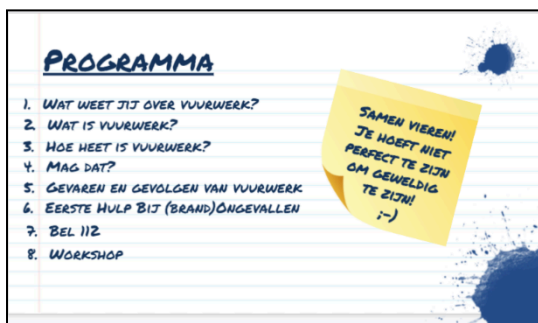 Programma
1. Wat weet jij over vuurwerk?
2. Wat is vuurwerk?
3. Hoe heet is vuurwerk?
4. Mag dat?
5. Gevaren en gevolgen van vuurwerk
6. Eerste Hulp Bij (brand)Ongevallen
7. Bel 112
8. Workshop
Samen vieren!
Je hoeft niet
perfect te zijn
om geweldig
te zijn!
;-)